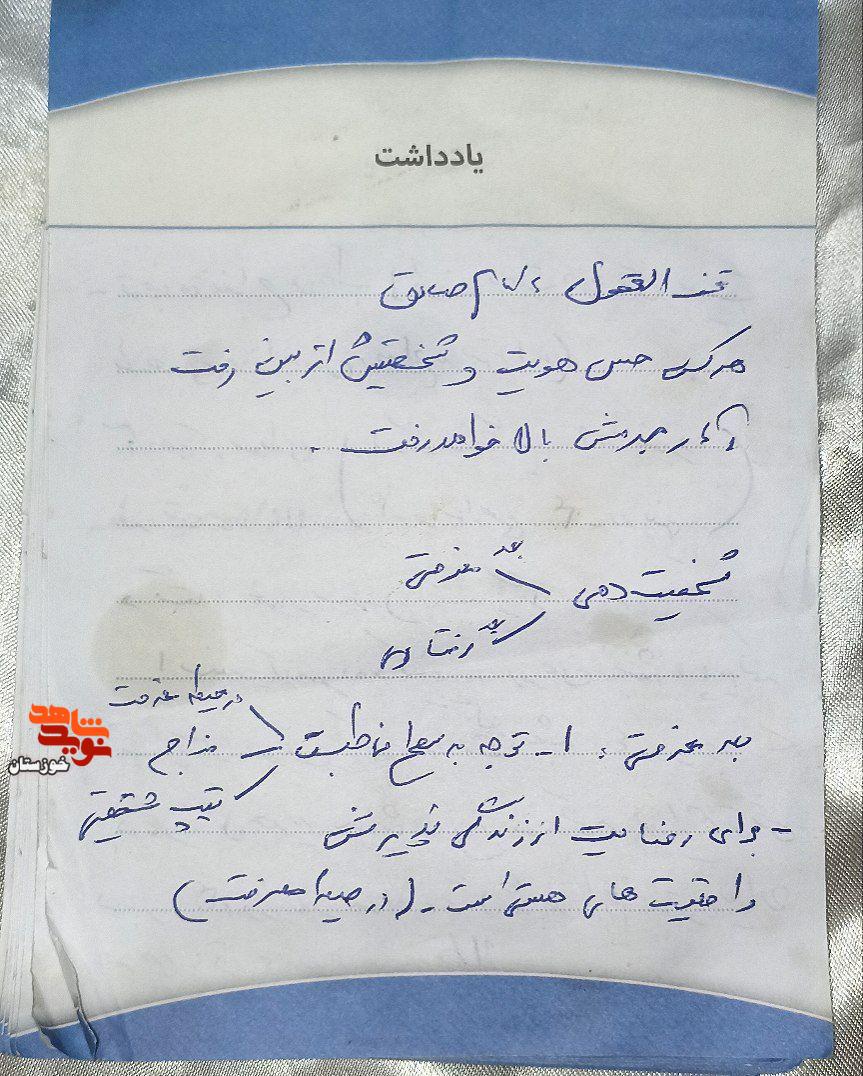 یادداشت
تحف العقول صادق
هر کس حس هویت و شخصیتش از بین رفت
آمار جرمش بالا خواهد رفت .
شخصیت دهی
بعد معرفتی
بعد رفتاری
در حیطه معرفت
بعد معرفتی : ۱ - توجه به سطح مخاطب
مزاج
تیپ شخصیتی
- برای رضایت از زندگی پذیرش
واقعیت های هستی است - ( در حیطه معرفت )
نوید شاهد
خوزستان